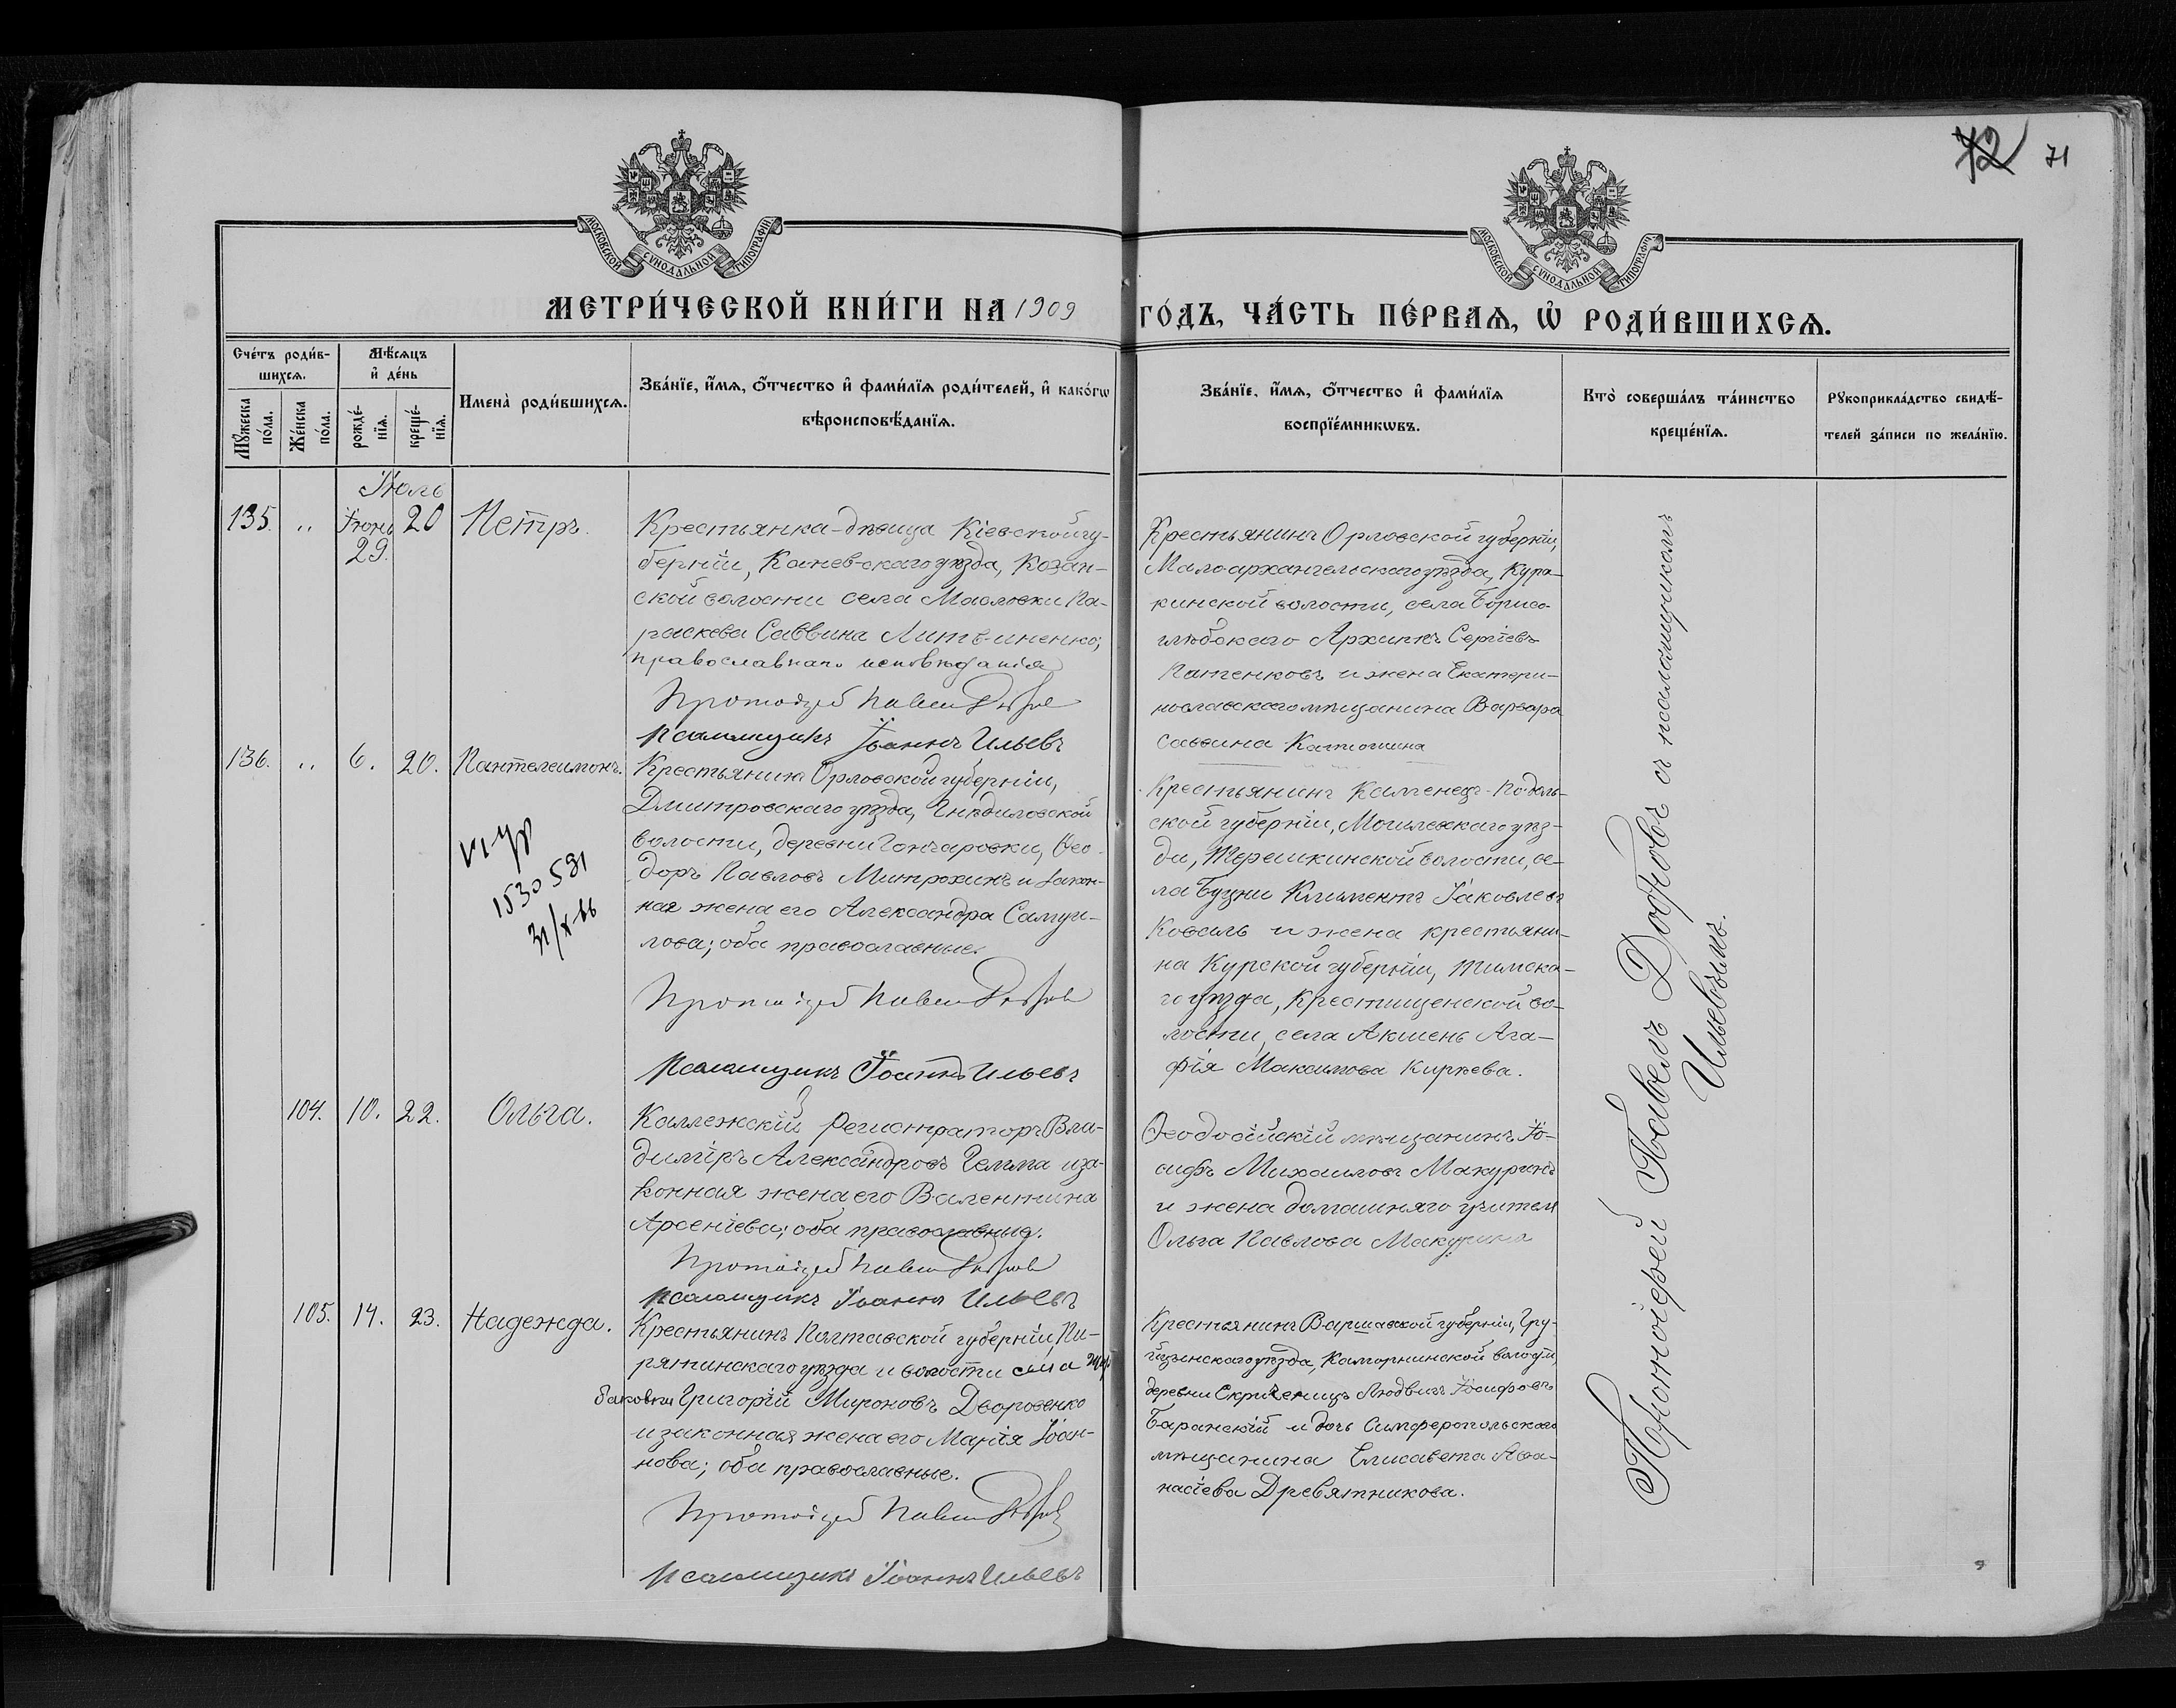 72 71
МОСКОВСКОЙ СѴНОДАЛЬНОЙ ТИПОГРАФІИ
МОСКОВСКОЙ СѴНОДАЛЬНОЙ ТИПОГРАФІИ
МЕТРИ́ЧЕСКОЙ КНИ́ГИ НА 1909 ГО́ДЪ, ЧА́СТЬ ПЕ́РВАѦ, Ѡ҆ РОДИ́ВШИХСѦ.
Сче́тъ роди́в-
шихсѧ.
Мꙋ́жеска по́ла.
Же́нска по́ла.
Мѣ́сѧцъ
и҆ де́нь
рожде́-
нїѧ.
креще́-
нїѧ.
Имена̀ роди́вшихсѧ.
Зва́нїе, и҆́мѧ, ѻ҆́тчество и҆ фами́лїѧ роди́телей, и҆ како́гѡ
вѣроисповѣ́данїѧ.
Зва́нїе, и҆́мѧ, ѻ҆́тчество и҆ фами́лїѧ
воспрїе́мникѡвъ.
Кто̀ соверша́лъ та́инство
креще́нїѧ.
Рꙋкоприкла́дство свидѣ́-
телей за́писи по жела́нїю.
Іюль
135. „ Іюнь 29. 20 Петръ.
Крестьянка-дѣвица Кіевской гу-
берніи, Каневскаго уѣзда, Козин-
ской волости села Масловки Па-
раскева Саввина Литвиненко;
православнаго исповѣданія
Протоіерей Павелъ Добровъ
Псаломщикъ Іоаннъ Ильевъ
Крестьянинъ Орловской губерніи,
Малоархангельскаго уѣзда, Кура-
кинской волости, села Борисо-
глѣбскаго Архипъ Сергіевъ
Патенковъ и жена Екатери-
нославскаго мѣщанина Варвара
Саввина Катюшина
136. „ 6. 20. Пантелеимонъ.
1530 591
31/X-66
Крестьянинъ Орловской губерніи,
Дмитровскаго уѣзда, Гнѣдиловской
волости, деревни Гончаровки, Ѳео-
доръ Павловъ Митрохинъ и закон-
ная жена его Александра Самуи-
лова; оба православные.
Протоіерей Павелъ Добровъ
Псаломщикъ Іоаннъ Ильевъ
Крестьянинъ Каменецъ-Подоль-
ской губерніи, Могилевскаго уѣз-
да, волости, се-
ла Климентъ Іаковлевъ
Коваль и жена крестьяни-
на Курской губерніи, Тимска-
го уѣзда, Крестищенской во-
лости, села Акшень Ага-
фія Максимова Киркева.
104. 10. 22. Ольга.
Коллежскій регистраторъ Вла-
димiръ Александровъ Гемма и за-
конная жена его Валентина
Арсеніева; оба православные.
Протоіерей Павелъ Добровъ
Псаломщикъ Іоаннъ Ильевъ
Ѳеодосійскій мѣщанинъ Іо-
сифъ Михаиловъ Макуринъ
и жена домашняго учителя
Ольга Павлова Макурина
105. 14. 23. Надежда.
Крестьянинъ Полтавской губерніи, Пи-
рятинскаго уѣзда и волости села
Григорій Мироновъ Дворовенко
и законная жена его Марія Іоан-
нова; оба православные.
Протоіерей Павелъ Добровъ
Псаломщикъ Іоаннъ Ильевъ
Крестьянинъ Варшавской губерніи, Гру-
уѣзда, волости,
деревни Людвигъ Іосифовъ
Баранскій и дочь Симферопольскаго
мѣщанина Елисавета Аѳа-
насіева Древятникова.
Протоіерей Павелъ Добровъ съ псаломщикомъ
Ильевымъ.